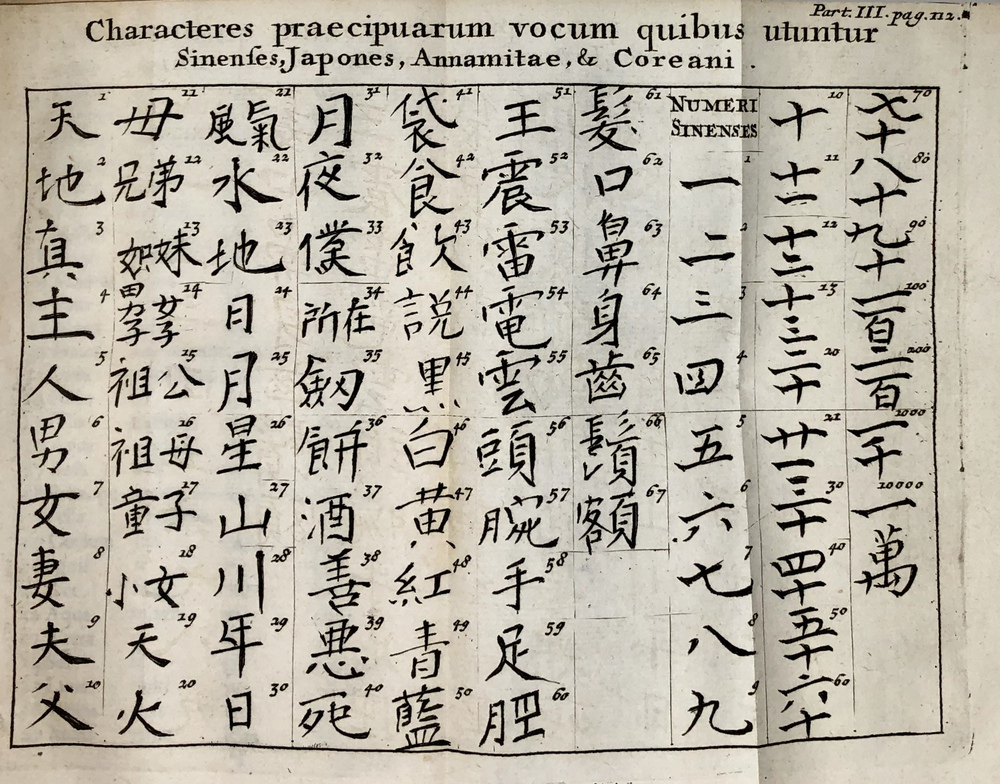 Part. III. pag. 112.
Characteres praecipuarum vocum quibus utuntur
Sinenses, Japones, Annamitae, & Coreani.
天 1
地 2
真 3
主 4
人 5
男 6
女 7
妻 8
夫 9
父 10
母 11
兄弟 12
姊妹 13
男子 女子 14
祖公 15
祖母 16
童子 17
小女 18
天 19
火 20
風氣 21
水 22
地 23
日 24
月 25
星 26
山 27
川 28
年 29
日 30
月 31
夜 32
僕 33
所在 34
劒 35
餅 36
酒 37
善 38
悪 39
死 40
袋 41
食 42
飲 43
説 44
黒 45
白 46
黄 47
紅 48
青 49
藍 50
王 51
震 52
雷 53
電 54
雲 55
頭 56
腕 57
手 58
足 59
肥 60
髪 61
口 62
鼻 63
身 64
齒 65
鬚 66
額 67
NUMERI
SINENSES
一 1
二 2
三 3
四 4
五 5
六 6
七 7
八 8
九 9
十 10
十一 11
十二 12
十三 13
二十 20
廿一 21
三十 30
四十 40
五十 50
六十 60
七十 70
八十 80
九十 90
一百 100
二百 200
一千 1000
一萬 10000